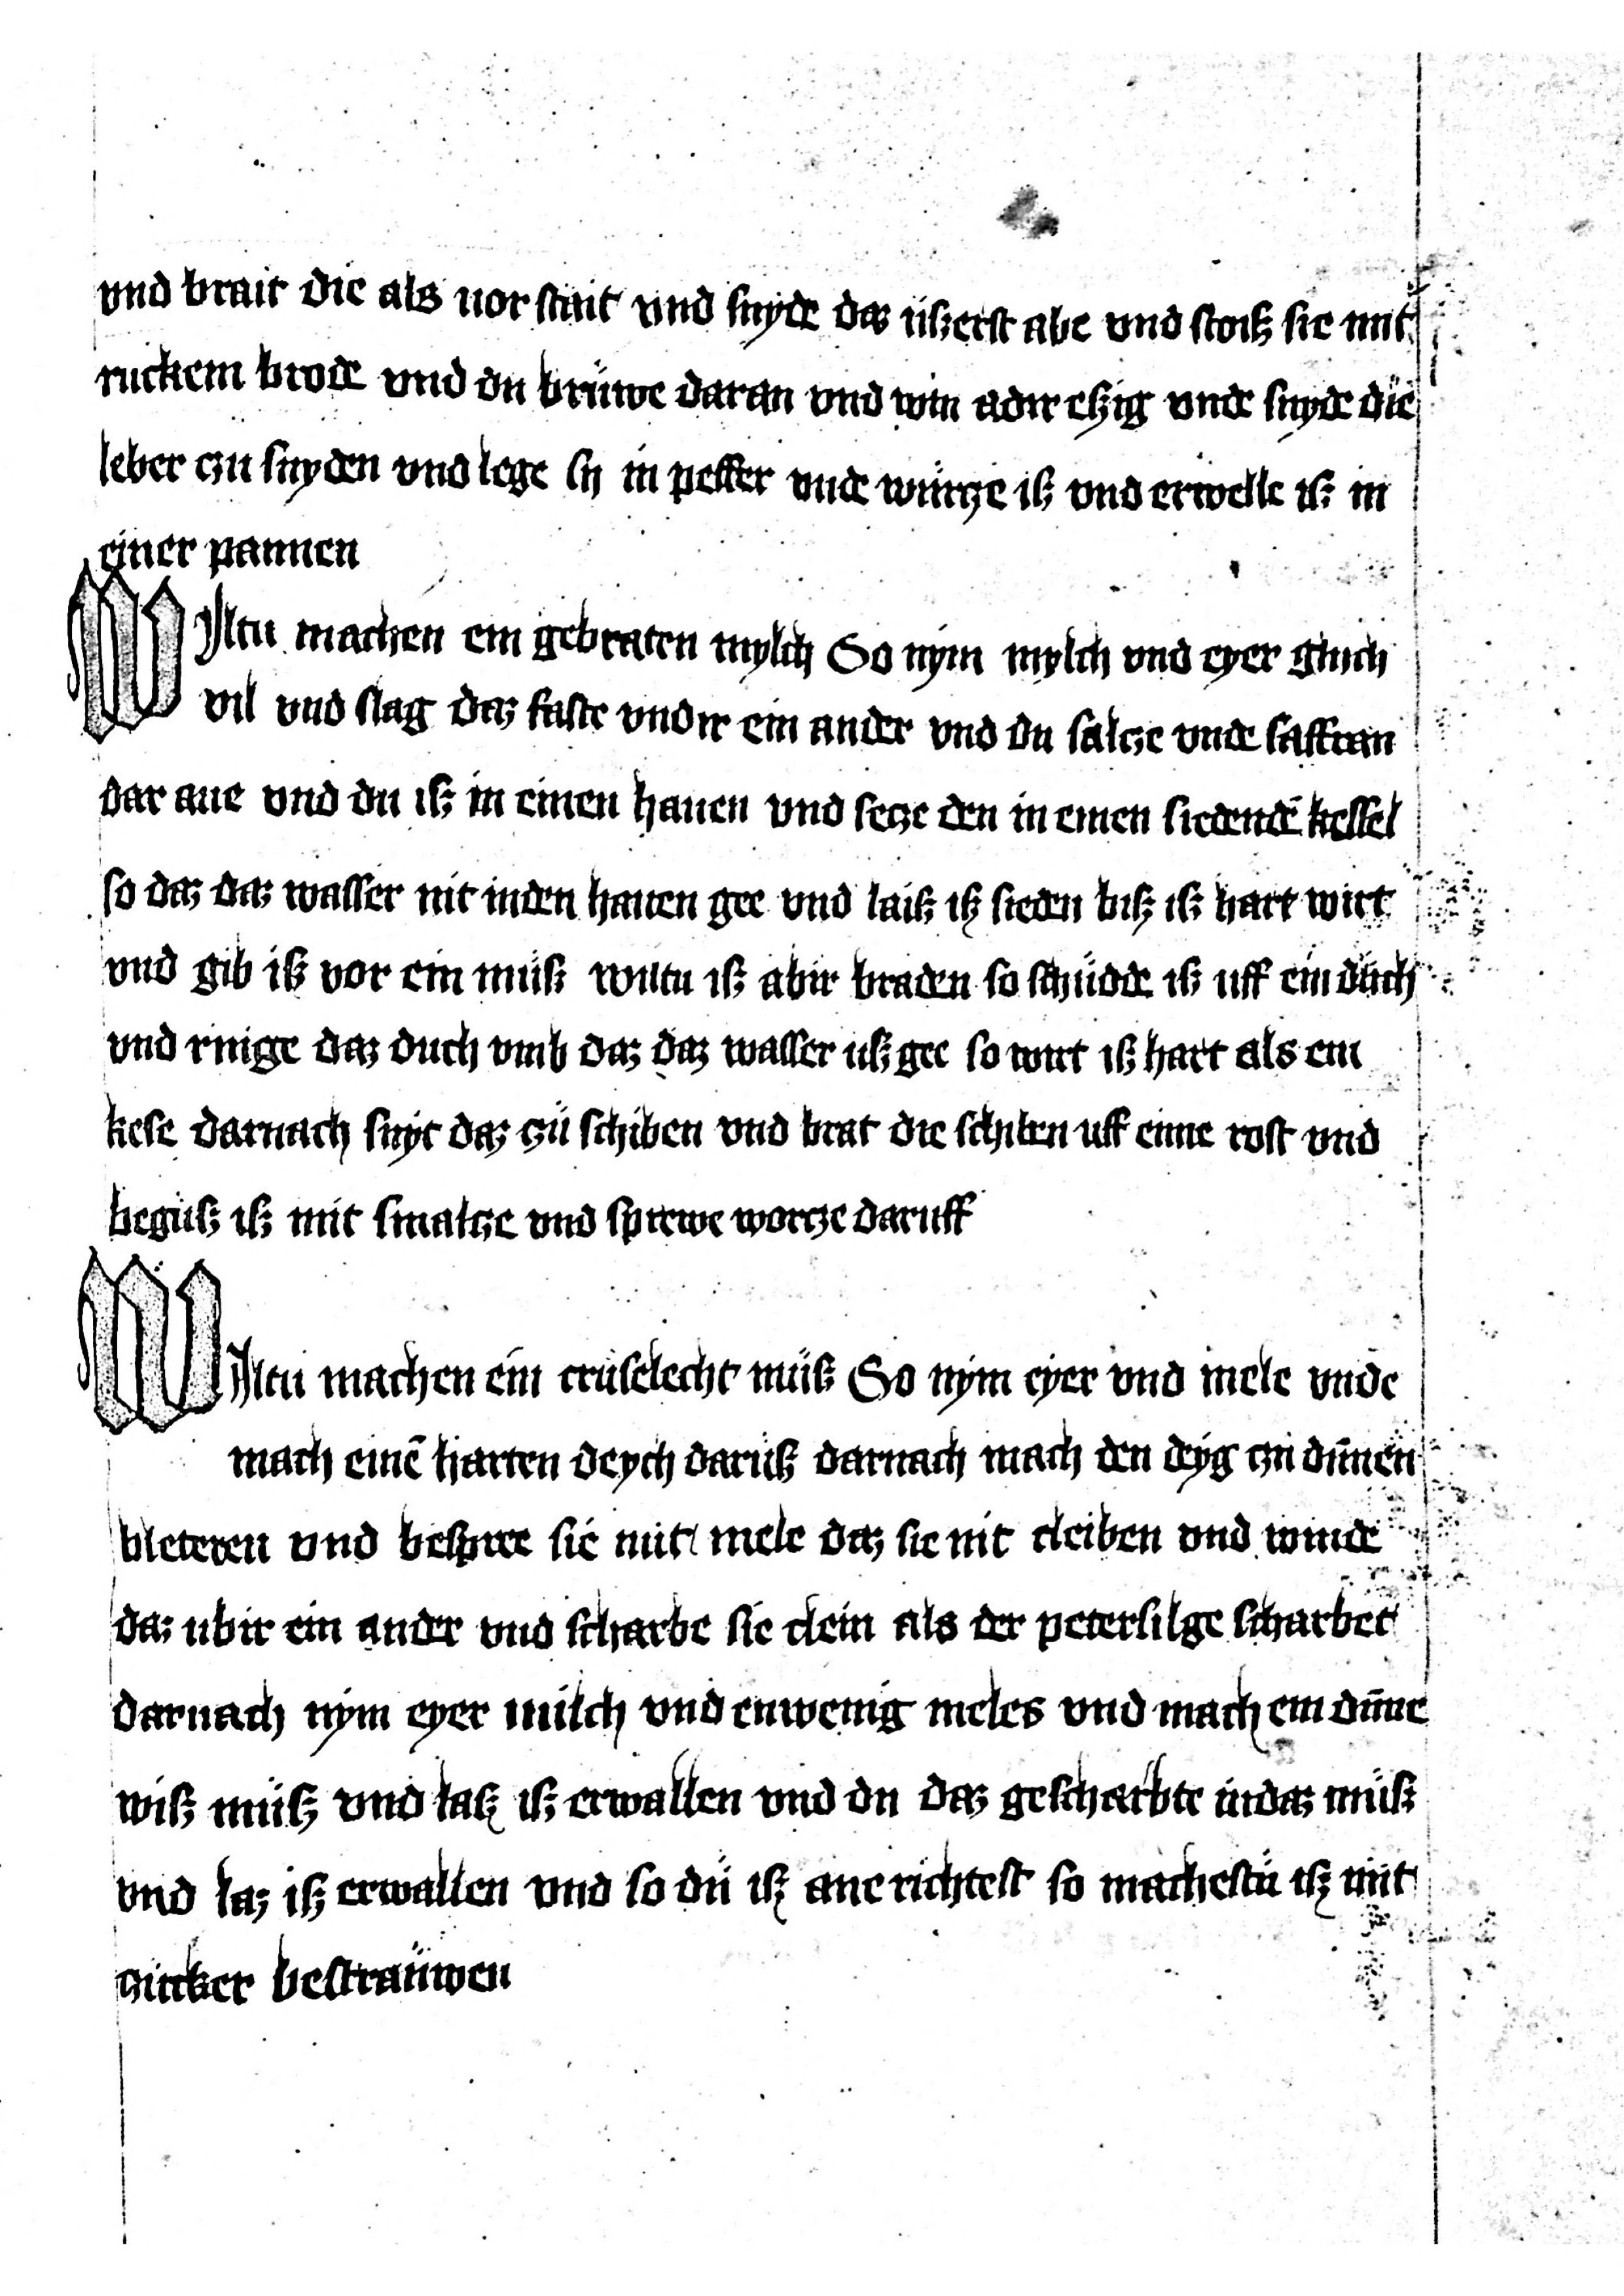 vnd brait die als uor stait vnd snyde daz uszerst abe vnd stoisz sie mit
ruckem brode vnd du brüwe daran vnd win adir eszig vnde snyde die
leber czu snyden vnd lege sy in peffer vnde würcze isz vnd erwelle isz in
einer pannen
Wyltu machen ein gebraten mylch So nym mylch vnd eyer glich
vil vnd slag daz faste vndir ein ander vnd du salcze vnde saffran
dar ane vnd du isz in einen hauen vnd secze den in einen siedendē kessel
so daz daz wasser nit in den hauen gee vnd laisz isz sieden bisz isz hart wirt
vnd gib isz vor ein müsz wiltu isz abir braden so schüdde isz uff ein düch
vnd ringe daz duch vmb daz daz wasser usz gee so wirt isz hart als ein
kese darnach snyt daz czü schiben vnd brat die schiben uff eime rost vnd
begüsz isz mit smalcze vnd sprewe worcze daruff
Wiltu machen ein cruselecht müsz So nym eyer vnd mele vnde
mach einē harten deych darüsz darnach mach den deyg czu dūnen
bleteren vnd bespree sie mit mele daz sie nit cleiben vnd winde
daz ubir ein ander vnd scharbe sie clein als der petersilge scharbet
darnach nym eyer milch vnd enwenig meles vnd mach ein dūne
wisz müsz vnd lasz isz erwallen vnd du daz gescharbte in daz müsz
vnd laz isz erwallen vnd so dü isz ane richtest so machestü isz mit
zucker bestraüwen